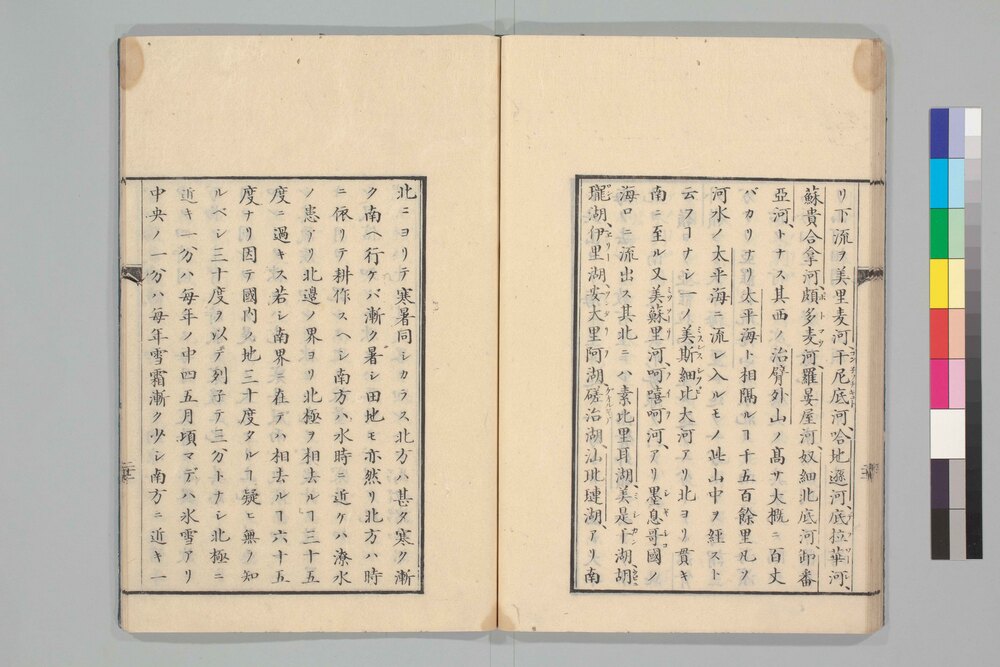 リ下流ヲ美里麦河、干尼底河哈地遜河底拉華河、
蘇貴合拿河頗多麦河、羅晏屋河、奴細北底河、卸番
亞河、トナス其西ノ治臂外山ノ高サ大概ニ百丈
バカリナリ太平海ト相隔ルヿ十五百餘里凡ソ
河水ノ太平海ニ流レ入ルモノ此山中ヲ経スト
云フヿナシ一ノ美斯細比大河アリ北ヨリ貫キ
南ニ至ル又美蘇里河、呵嘻呵河、アリ墨息哥國ノ
海口ニ流出ス其北ニハ素比里耳湖、美是干湖、胡
瓏湖、伊里湖、安大里阿湖、磋治湖、汕玭璉湖、アリ南
北ニヨリテ寒暑同シカラス北方ハ甚タ寒ク漸
ク南ヘ行ケバ漸ク暑シ田地モ亦然リ北方ハ時
ニ依リテ耕作スヘシ南方ハ水時ニ近ケハ潦水
ノ患アリ北邉ノ界ヨリ北極ヲ相去ルヿ三十五
度ニ過キス若シ南界ニ在テハ相去ルヿ六十五
度ナリ因テ國内ノ地三十度タルヿ疑ヒ無フ知
ルベシ三十度ヲ以テ列子テ三分トナシ北極ニ
近キ一分ハ毎年ノ中四五月頃マデハ氷雪アリ
中央ノ一分ハ毎年雪霜漸ク少シ南方ニ近キ一